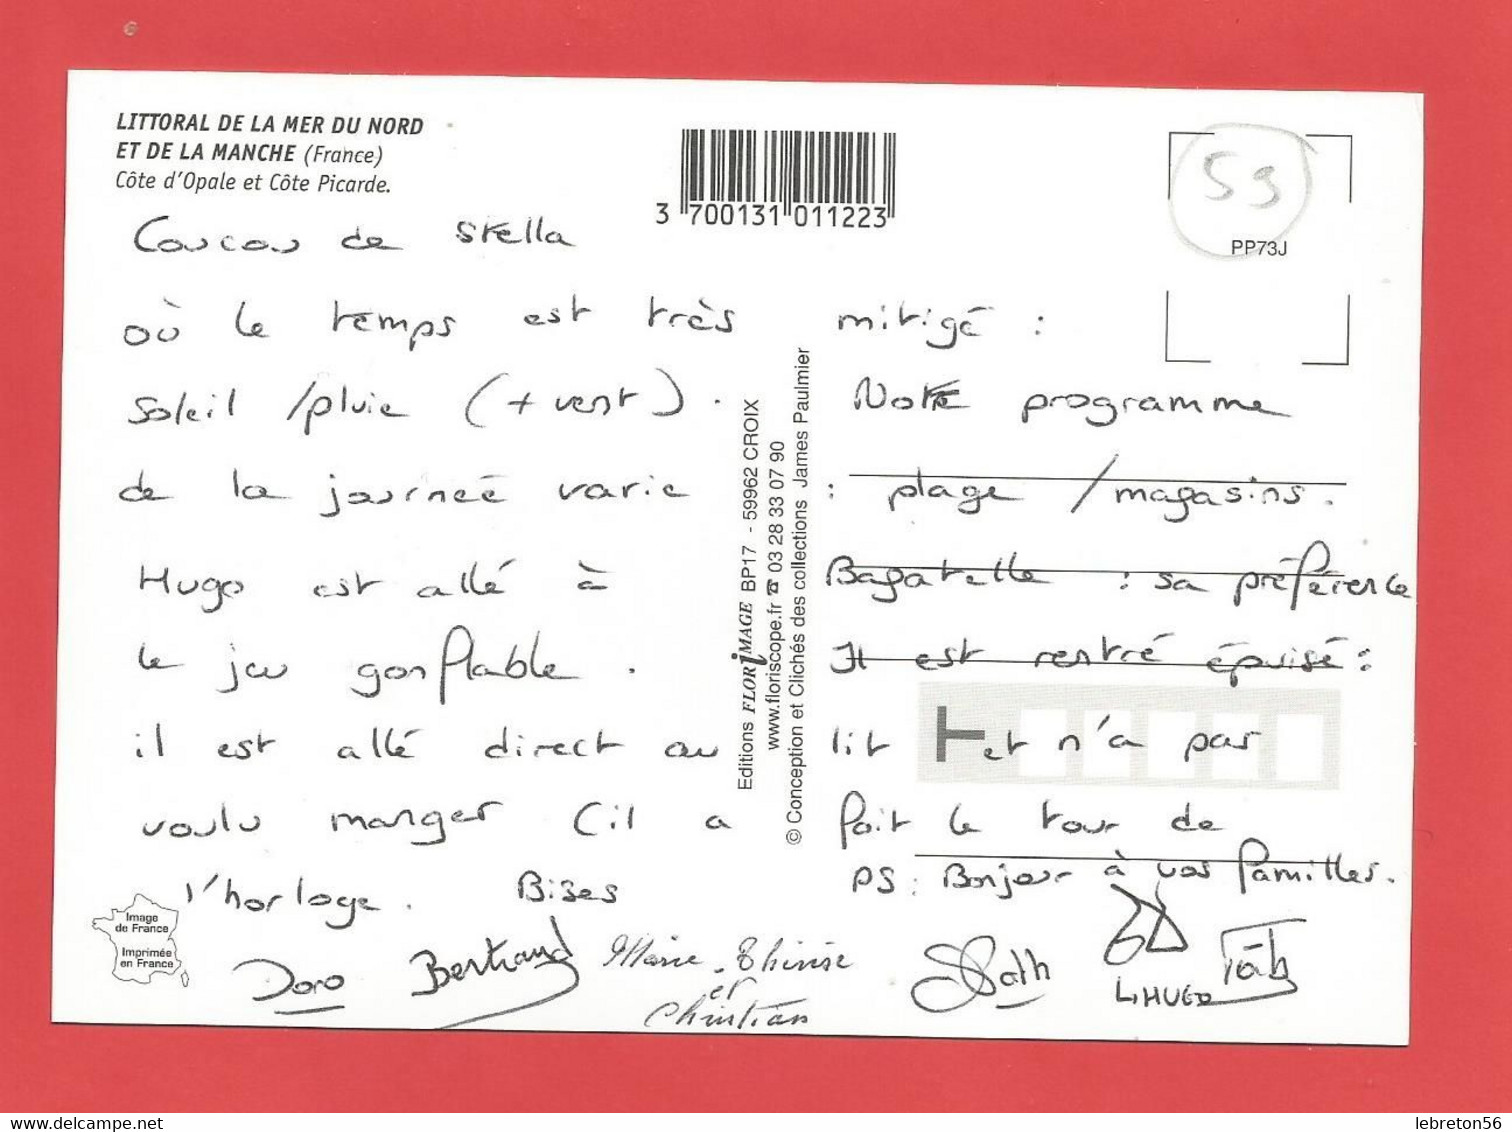 LITTORAL DE LA MER DU NORD
ET DE LA MANCHE (France)
Côte d'Opale et Côte Picarde.
3 700131 011223
59
PP73J
Coucou de Stella
où le temps est très mitigé :
soleil / pluie (+ vent). Notre programme
de la journée varie : plage / magasins.
Hugo est allé à Bagatelle : sa préférence
le jeu gonflable. Il est rentré épuisé :
il est allé direct au lit et n'a pas
voulu manger (il a fait le tour de
l'horloge. Bises
PS : Bonjour à vos familles.
Doro Bertrand Marie-Thérèse
et
Christian
HUGO
Editions FLORiMAGE BP17 - 59962 CROIX
www.floriscope.fr ☎ 03 28 33 07 90
© Conception et Clichés des collections James Paulmier
Image
de France
Imprimée
en France
lebreton56